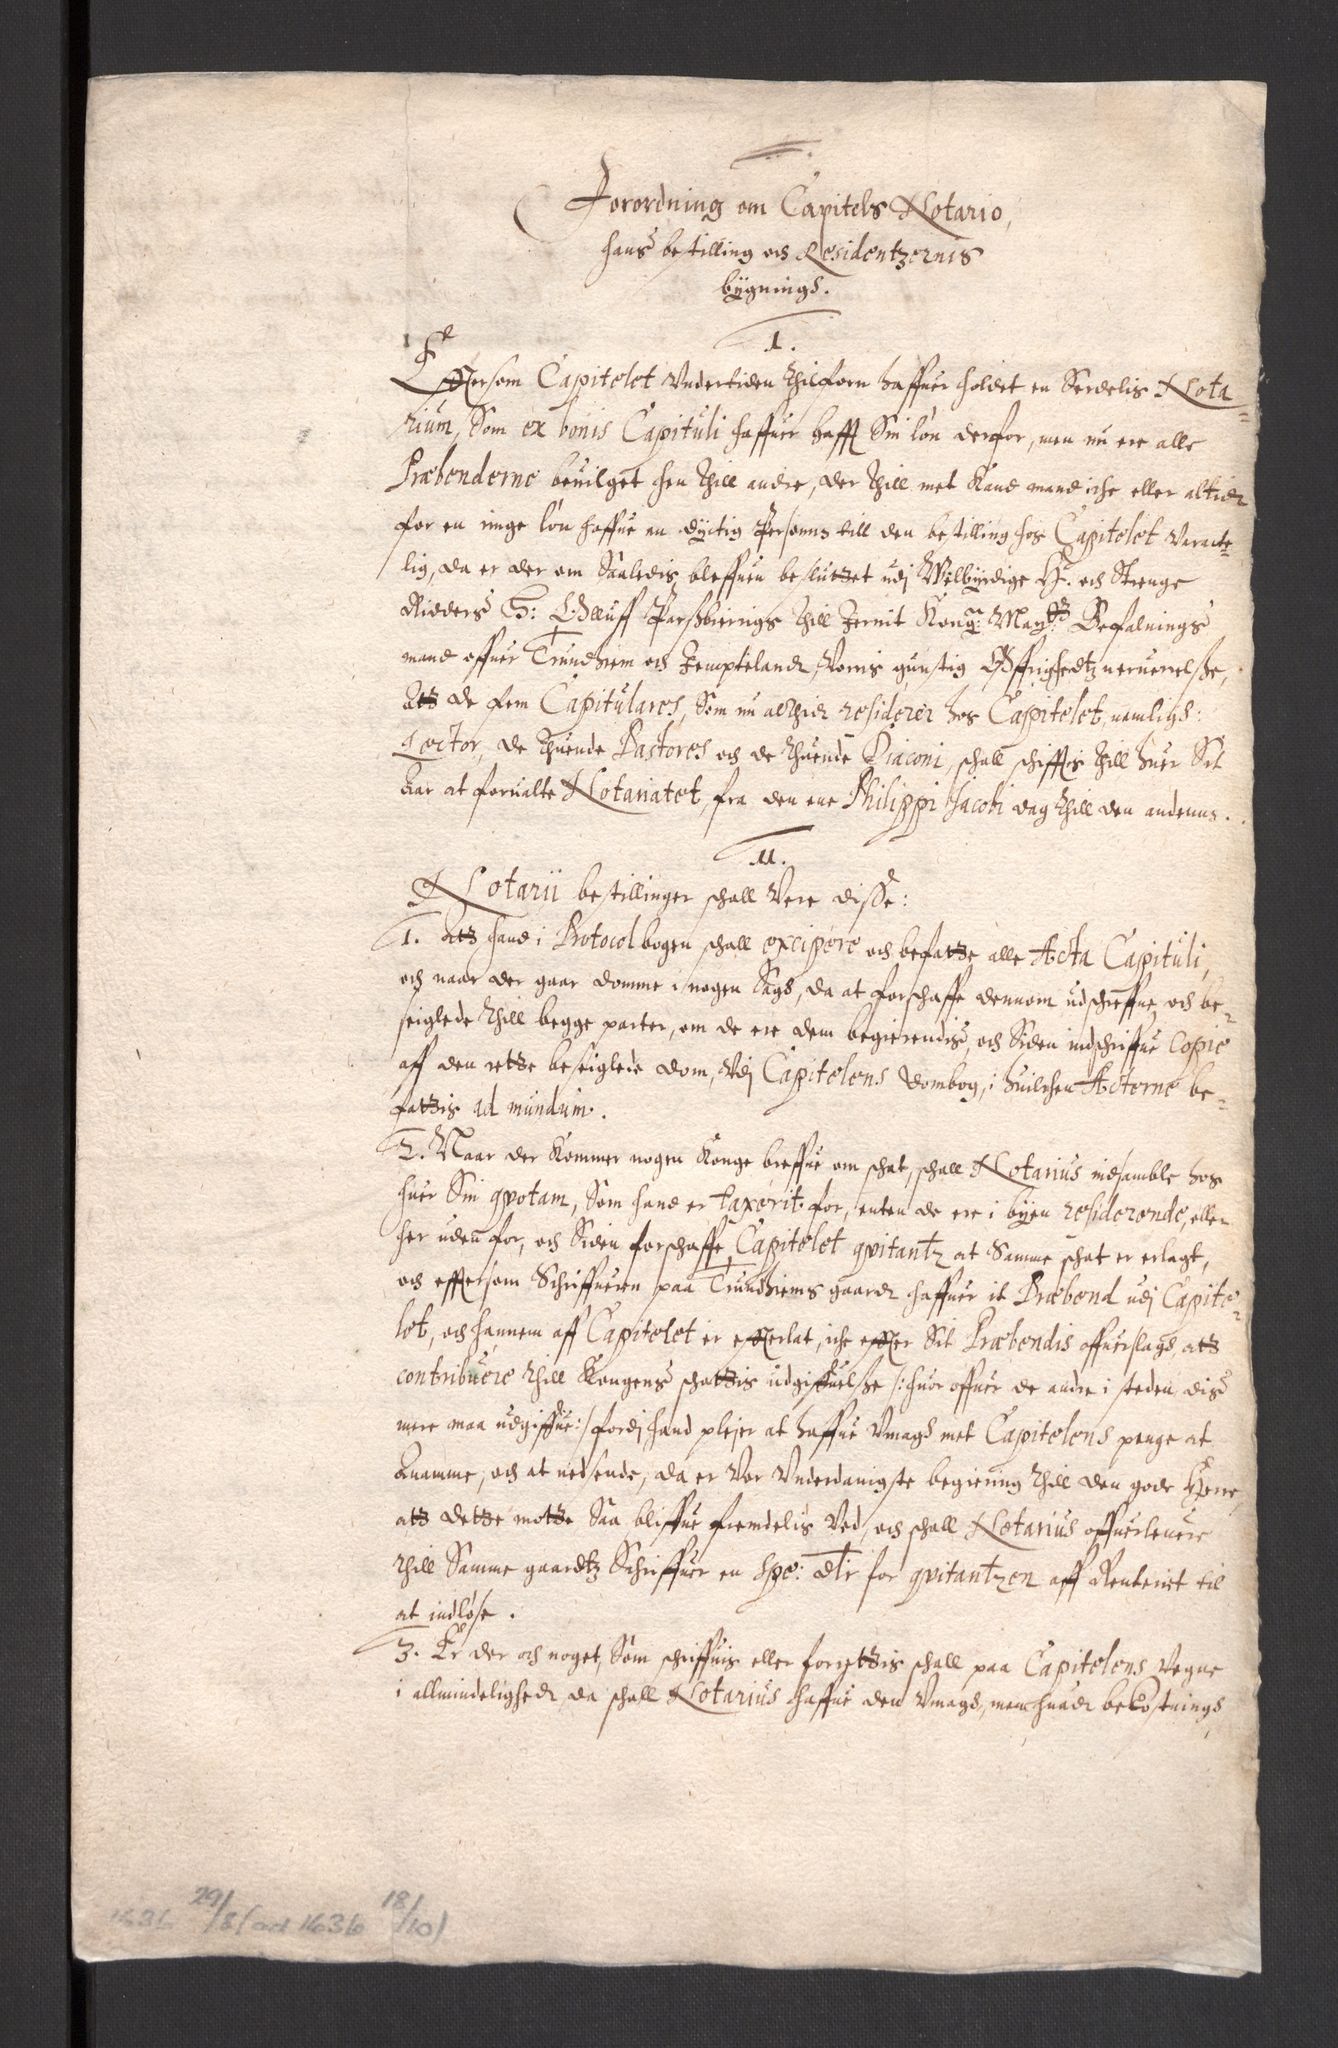 Forordning om Capitels Notario,
hans bestilling och Residentzernis
bygnings.
1.
Effersom Capitelet Undertiden thilforn haffuer holdet en Serdelis Nota=
rium, Som ex bonis Capituli haffuer hafft Sin løn derfor, men nu ere alle
Præbenderne beuilget hen thill andre, der thill met Kand mand iche eller altidt
for en ringe løn haffue en dyctig Persønne till den bestilling hos Capitelet Varacte=
lig, da er der om Saaledis bleffuen besluttet udj Welbyrdige H. och Strenge
Ridders H: Oluff Parssbierrigs thill Jernit Kong: May:tts Befalnings
mand offuer Trundhiem och Jempteland, Voris gunstig Øffrighedtz neruerelse,
Att de fem Capitulares, Som nu altid residerer hos Capitelet, nemligh:
Lector, de thuende Pastores och de thuende Diaconi, schall schifftis thill huer Sit
Aar at foruallte Notariatet, fra den ene Philippi Jacobi dag thill den andenn.
11.
Notarii bestillinger schall Vere disse:
1. Att hand i Protocol bogen schall excipere och befatte alle Acta Capituli,
och naar der gaar domme i nogen Sags, da at forschaffe dennom udschreffne och be=
seiglede thill begge parter, om de ere dem begierendis, och Siden indschriffue Copie
aff den rette beseiglede dom, Udj Capitelens dombog, i huilchen Acterne be=
fattis ad mundum.
2. Naar der Kommer nogen Konge breffue om schat, schall Notarius indsamble hos
huer Sin qvotam, Som hand er taxerit for, enten de ere i byen residerende, eller
her uden for, och Siden forschaffe Capitelet qvitantz at Samme schat er erlagt,
och effersom Schriffueren paa Trundhiems gaardt haffuer it Præbend udj Capite=
let, och hannem aff Capitelet er effterlat, iche effter Sit Præbendis offuerslags, att
contribuere thill Kongens schattis udgiffuelse /: huor offuer de andre i steden dis
mere maa udgiffue :/ fordj hand plejer at haffue Umags met Capitelens penge at
Anamme, och at nedsende, da er Vor Underdanigste begiering thill den gode Herre,
att dette motte Saa bliffue fremdelis Ved, och schall Notarius offuerleuere
thill Samme gaardtz Schriffuer en Spe: dlr for qvitantzen aff Renteriet til
at indløse.
3. Er der och noget, Som schriffuis eller forrettis schall paa Capitelens Vegne
i allmindelighedt, da schall Notarius haffue den Umags, men huadt bekostnings
1636 29/8 (ad 1636 18/10)